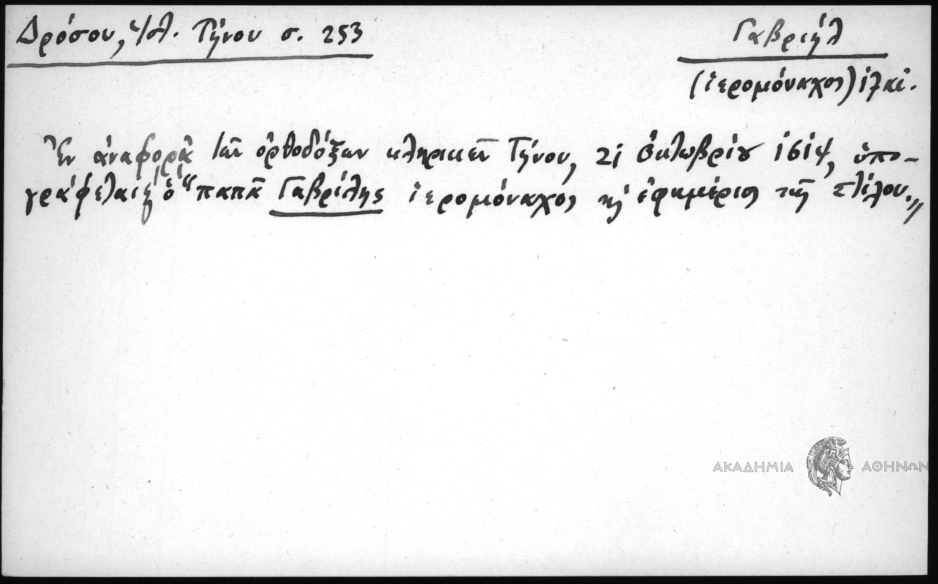 Δρόσου, Ἱστ. Τήνου σ. 253
Γαβριήλ
(ἱερομόναχος)
Ἐν ἀναφορᾷ τῶν ὀρθοδόξων κληρικῶν Τήνου, 21 Ὀκτωβρίου 1614, ὑπο-
γράφεται ὁ "παπᾶ Γαβρίλης ἱερομόναχος κὲ ἐφημέριος τῆς Στίλου."
ΑΚΑΔΗΜΙΑ ΑΘΗΝΩΝ